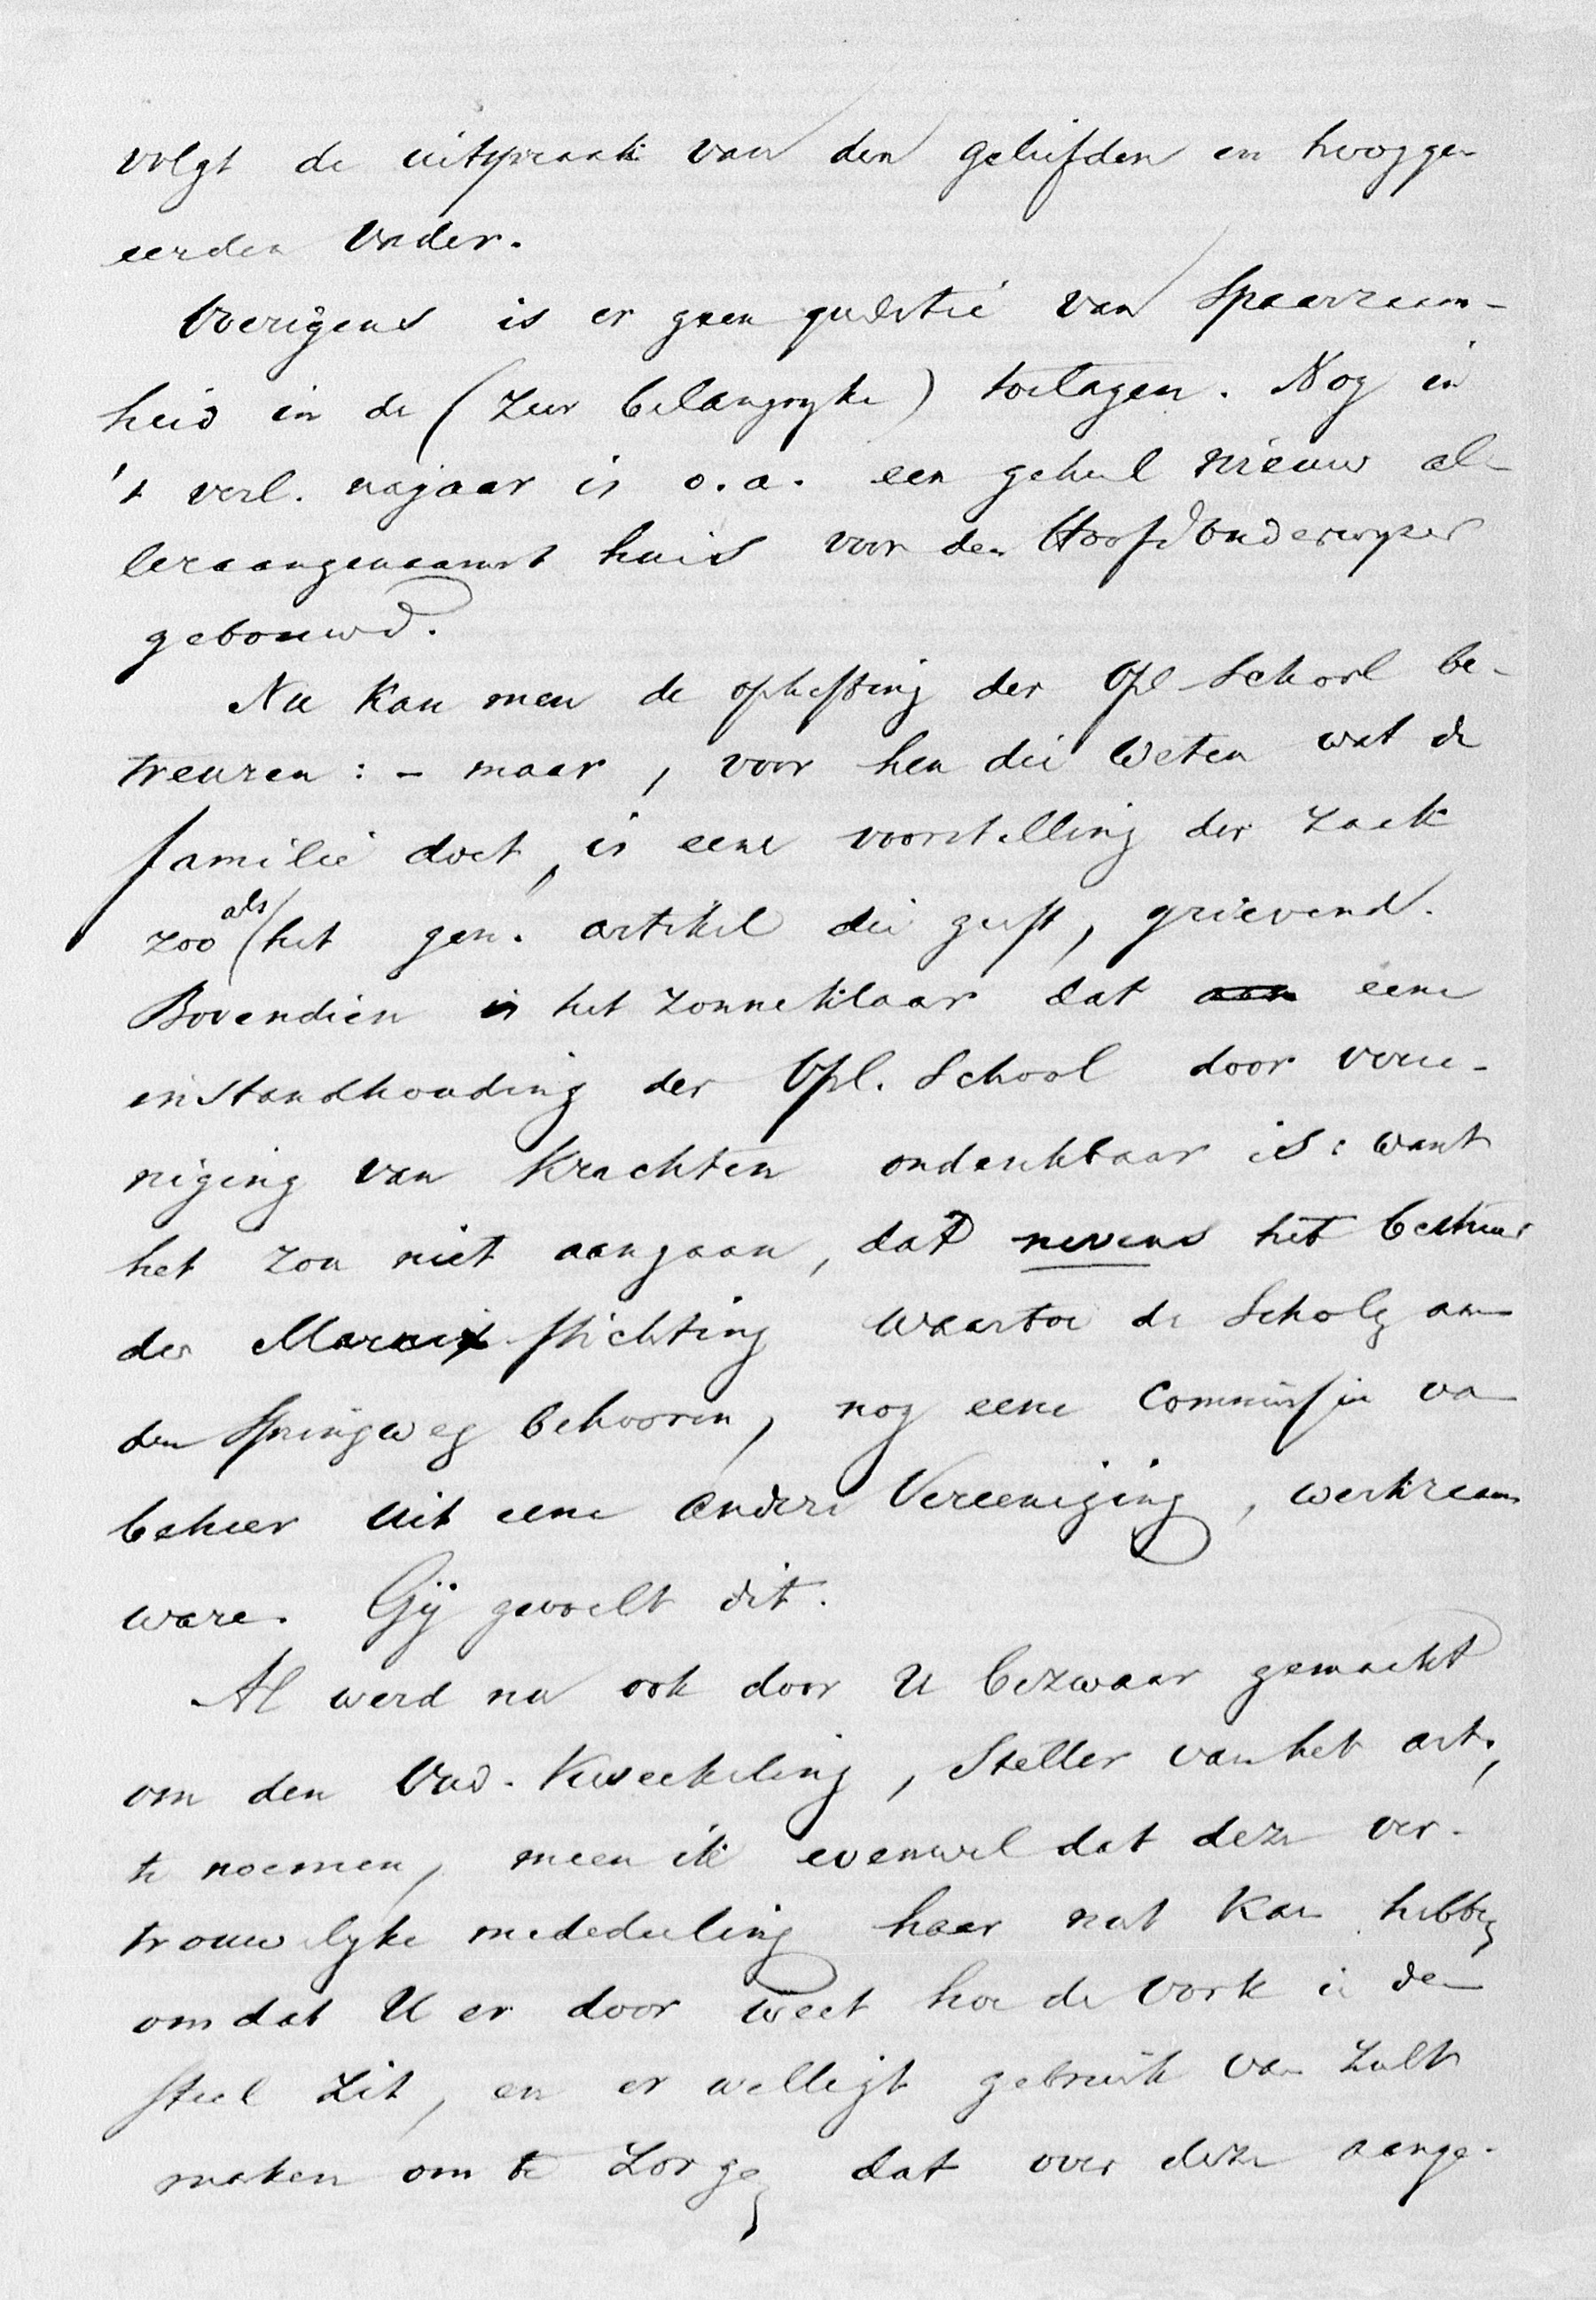 volgt de uitspraak van den geliefden en hoogge-
eerden Vader.
Overigens is er geen quaestie van Spaarzaam-
heid in de (zeer belangryke) toelagen. Nog in
't verl. najaar is o.a. een geheel nieuw al-
leraangenaamst huis voor den Hoofdonderwyzer
gebouwd.
Nu kan men de opheffing der Opl-School be-
treuren: - maar, voor hen die weten wat de
familie doet, is eene voorstelling der zaak
zoo als het gen. artikel die geeft, grievend.
Bovendien is het zonneklaar dat aan eene
instandhouding der Opl. School door veree-
niging van krachten ondenkbaar is: want
het zou niet aangaan, dat nevens het bestuur
der Marnix-stichting waartoe de Scholen aan
den Springweg behooren, nog eene Commissie van
beheer uit eene andere Vereeniging, werkzaam
ware. Gij gevoelt dit.
Al werd nu ook door U bezwaar gemaakt
om den Oud-Kweekeling, Steller van het art.,
te noemen, meen ik evenwel dat deze ver-
trouwelyke mededeeling haar nut kan hebben
omdat U er door weet hoe de vork in den
steel zit, en er welligt gebruik van zult
maken om te zorgen dat over deze aange-